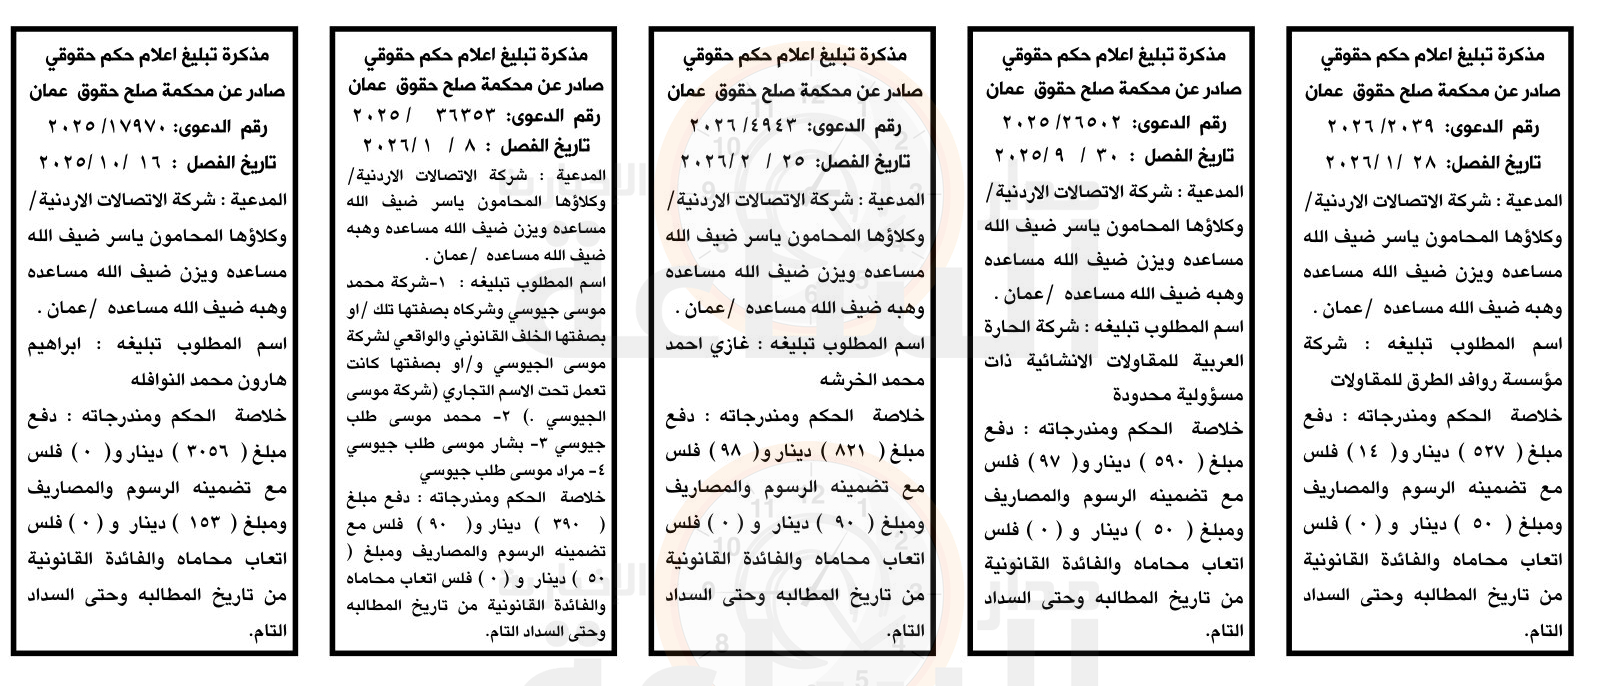 مذكرة تبليغ اعلام حكم حقوقي
صادر عن محكمة صلح حقوق عمان
رقم الدعوى: ٢٠٣٩/ ٢٠٢٦
تاريخ الفصل: ٢٨ /١ /٢٠٢٦
المدعية : شركة الاتصالات الاردنية/
وكلاؤها المحامون ياسر ضيف الله
مساعده ويزن ضيف الله مساعده
وهبه ضيف الله مساعده /عمان .
اسم المطلوب تبليغه : شركة
مؤسسة روافد الطرق للمقاولات
خلاصة الحكم ومندرجاته : دفع
مبلغ ( ٥٢٧ ) دينار و( ١٤ ) فلس
مع تضمينه الرسوم والمصاريف
ومبلغ ( ٥٠ ) دينار و ( ٠ ) فلس
اتعاب محاماه والفائدة القانونية
من تاريخ المطالبه وحتى السداد
التام.
مذكرة تبليغ اعلام حكم حقوقي
صادر عن محكمة صلح حقوق عمان
رقم الدعوى: ٢٦٥٠٢/ ٢٠٢٥
تاريخ الفصل : ٣٠ / ٩ /٢٠٢٥
المدعية : شركة الاتصالات الاردنية/
وكلاؤها المحامون ياسر ضيف الله
مساعده ويزن ضيف الله مساعده
وهبه ضيف الله مساعده /عمان .
اسم المطلوب تبليغه : شركة الحارة
العربية للمقاولات الانشائية ذات
مسؤولية محدودة
خلاصة الحكم ومندرجاته : دفع
مبلغ ( ٥٩٠ ) دينار و( ٩٧ ) فلس
مع تضمينه الرسوم والمصاريف
ومبلغ ( ٥٠ ) دينار و ( ٠ ) فلس
اتعاب محاماه والفائدة القانونية
من تاريخ المطالبه وحتى السداد
التام.
مذكرة تبليغ اعلام حكم حقوقي
صادر عن محكمة صلح حقوق عمان
رقم الدعوى: ٤٩٤٣/ ٢٠٢٦
تاريخ الفصل: ٢٥ / ٢ /٢٠٢٦
المدعية : شركة الاتصالات الاردنية/
وكلاؤها المحامون ياسر ضيف الله
مساعده ويزن ضيف الله مساعده
وهبه ضيف الله مساعده /عمان .
اسم المطلوب تبليغه : غازي احمد
محمد الخرشه
خلاصة الحكم ومندرجاته : دفع
مبلغ ( ٨٢١ ) دينار و( ٩٨ ) فلس
مع تضمينه الرسوم والمصاريف
ومبلغ ( ٩٠ ) دينار و ( ٠ ) فلس
اتعاب محاماه والفائدة القانونية
من تاريخ المطالبه وحتى السداد
التام.
مذكرة تبليغ اعلام حكم حقوقي
صادر عن محكمة صلح حقوق عمان
رقم الدعوى: ٣٦٣٥٣ / ٢٠٢٥
تاريخ الفصل : ٨ / ١ /٢٠٢٦
المدعية : شركة الاتصالات الاردنية/
وكلاؤها المحامون ياسر ضيف الله
مساعده ويزن ضيف الله مساعده وهبه
ضيف الله مساعده /عمان .
اسم المطلوب تبليغه : ١-شركة محمد
موسى جيوسي وشركاه بصفتها تلك /او
بصفتها الخلف القانوني والواقعي لشركة
موسى الجيوسي و/او بصفتها كانت
تعمل تحت الاسم التجاري (شركة موسى
الجيوسي .) ٢- محمد موسى طلب
جيوسي ٣- بشار موسى طلب جيوسي
٤- مراد موسى طلب جيوسي
خلاصة الحكم ومندرجاته : دفع مبلغ
( ٣٩٠ ) دينار و( ٩٠ ) فلس مع
تضمينه الرسوم والمصاريف ومبلغ (
٥٠ ) دينار و ( ٠ ) فلس اتعاب محاماه
والفائدة القانونية من تاريخ المطالبه
وحتى السداد التام.
مذكرة تبليغ اعلام حكم حقوقي
صادر عن محكمة صلح حقوق عمان
رقم الدعوى: ١٧٩٧٠/ ٢٠٢٥
تاريخ الفصل : ١٦ /١٠ /٢٠٢٥
المدعية : شركة الاتصالات الاردنية/
وكلاؤها المحامون ياسر ضيف الله
مساعده ويزن ضيف الله مساعده
وهبه ضيف الله مساعده /عمان .
اسم المطلوب تبليغه : ابراهيم
هارون محمد النوافله
خلاصة الحكم ومندرجاته : دفع
مبلغ ( ٣٠٥٦ ) دينار و( ٠ ) فلس
مع تضمينه الرسوم والمصاريف
ومبلغ ( ١٥٣ ) دينار و ( ٠ ) فلس
اتعاب محاماه والفائدة القانونية
من تاريخ المطالبه وحتى السداد
التام.